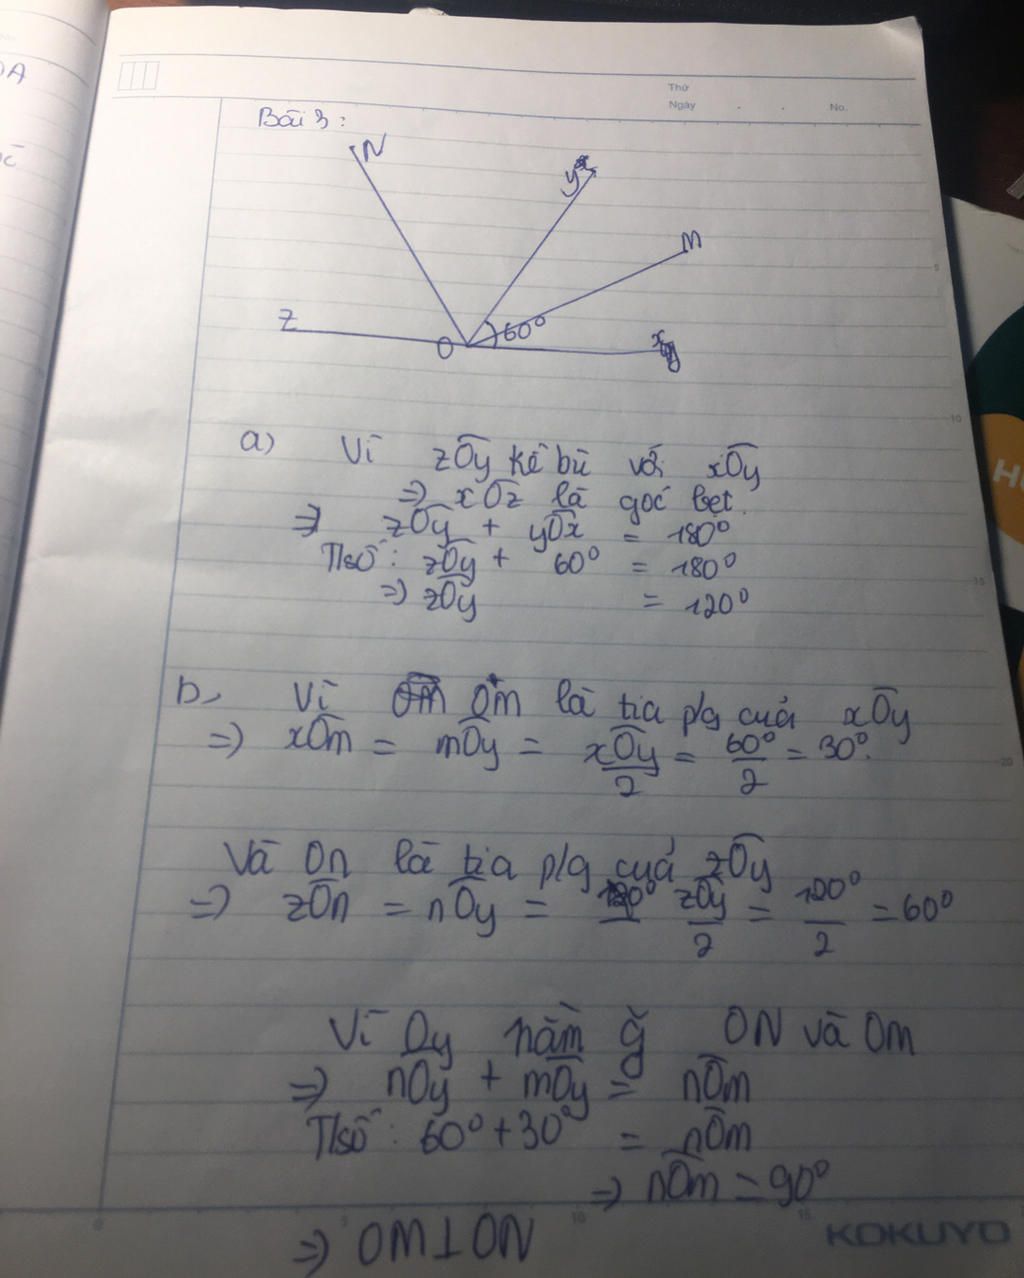 OA
Thứ
Ngày . . No.
Bài 3:
N
y
M
Z
60°
O
x
5
10
a) Vì zOy kề bù với xOy
=> xOz là góc bẹt.
=> zOy + yOx = 180°
T/số: zOy + 60° = 180°
=> zOy = 120°
15
b, Vì Om là tia p/g của xOy
=> xOm = mOy = xOy/2 = 60°/2 = 30°.
20
Và On là tia p/g của zOy
=> zOn = nOy = zOy/2 = 120°/2 = 60°
Vì Oy nằm g̃ ON và OM
=> nOy + mOy = nOm
T/số: 60° + 30° = nOm
=> nOm = 90°
=> OM⊥ON
5 10 15
KOKUYO